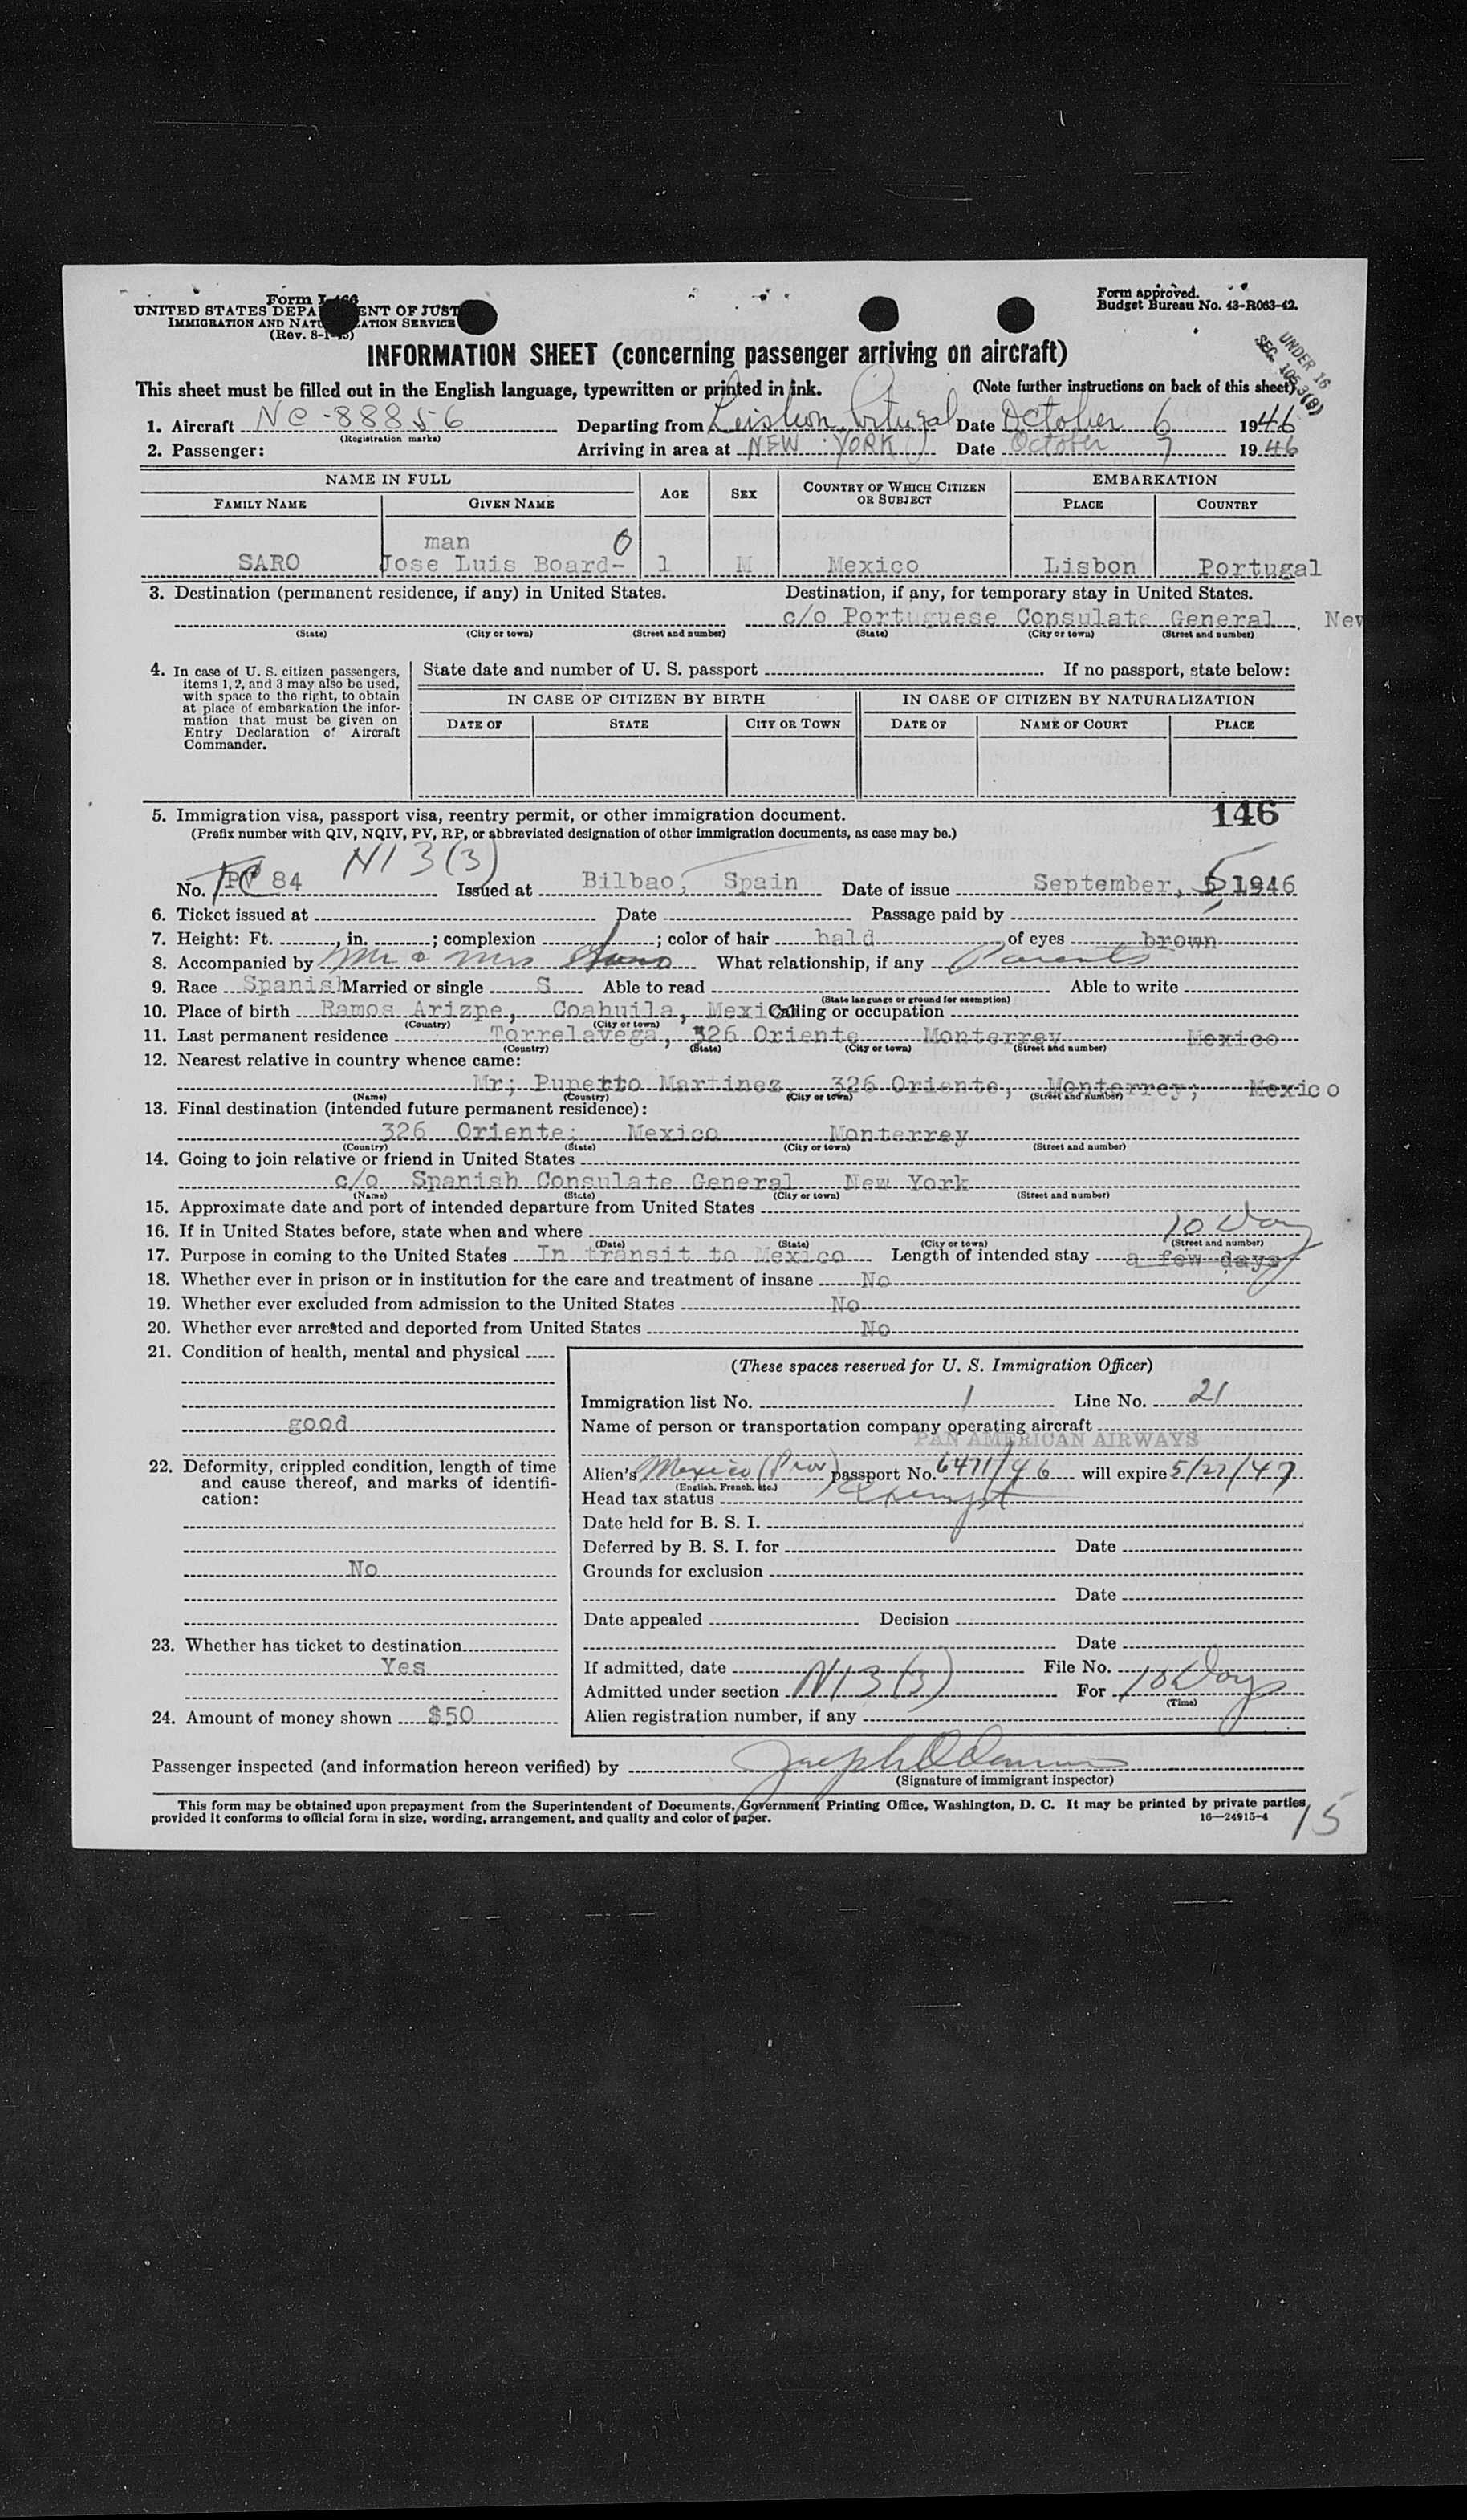 Form I-466
UNITED STATES DEPARTMENT OF JUST
IMMIGRATION AND NATURALIZATION SERVICE
(Rev. 8-1-45)
Form approved.
Budget Bureau No. 43-R063-42.
UNDER 16
SEC. 105.3(9)
INFORMATION SHEET (concerning passenger arriving on aircraft)
This sheet must be filled out in the English language, typewritten or printed in ink. (Note further instructions on back of this sheet)
1. Aircraft NC-88856 Departing from Lisbon, Portugal Date October 6 1946
(Registration marks)
2. Passenger: Arriving in area at NEW YORK Date October 7 1946
NAME IN FULL AGE SEX COUNTRY OF WHICH CITIZEN OR SUBJECT EMBARKATION
FAMILY NAME GIVEN NAME PLACE COUNTRY
man 0
SARO Jose Luis Board- 1 M Mexico Lisbon Portugal
3. Destination (permanent residence, if any) in United States. Destination, if any, for temporary stay in United States.
c/o Portuguese Consulate General New
(State) (City or town) (Street and number) (State) (City or town) (Street and number)
4. In case of U. S. citizen passengers, items 1, 2, and 3 may also be used, with space to the right, to obtain at place of embarkation the information that must be given on Entry Declaration of Aircraft Commander.
State date and number of U. S. passport If no passport, state below:
IN CASE OF CITIZEN BY BIRTH IN CASE OF CITIZEN BY NATURALIZATION
DATE OF STATE CITY OR TOWN DATE OF NAME OF COURT PLACE
146
5. Immigration visa, passport visa, reentry permit, or other immigration document.
(Prefix number with QIV, NQIV, PV, RP, or abbreviated designation of other immigration documents, as case may be.)
N13(3)
No. PV 84 Issued at Bilbao, Spain Date of issue September, 5 1946
6. Ticket issued at Date Passage paid by
7. Height: Ft. , in. ; complexion ; color of hair bald of eyes brown
8. Accompanied by Mr & Mrs Saro What relationship, if any Parents
9. Race Spanish Married or single S Able to read Able to write
(State language or ground for exemption)
10. Place of birth Ramos Arizpe, Coahuila, Mexi Calling or occupation
(Country) (City or town)
11. Last permanent residence Torrelavega, 326 Oriente Monterrey Mexico
(Country) (State) (City or town) (Street and number)
12. Nearest relative in country whence came:
Mr; Puperto Martinez, 326 Oriente, Monterrey; Mexico
(Name) (Country) (City or town) (Street and number)
13. Final destination (intended future permanent residence):
326 Oriente; Mexico Monterrey
(Country) (State) (City or town) (Street and number)
14. Going to join relative or friend in United States
c/o Spanish Consulate General New York
(Name) (State) (City or town) (Street and number)
15. Approximate date and port of intended departure from United States
16. If in United States before, state when and where 10 Day
(Date) (State) (City or town) (Street and number)
17. Purpose in coming to the United States In transit to Mexico Length of intended stay a few days
18. Whether ever in prison or in institution for the care and treatment of insane No
19. Whether ever excluded from admission to the United States No
20. Whether ever arrested and deported from United States No
21. Condition of health, mental and physical
good
22. Deformity, crippled condition, length of time and cause thereof, and marks of identification:
No
23. Whether has ticket to destination
Yes
24. Amount of money shown $50
(These spaces reserved for U. S. Immigration Officer)
Immigration list No. 1 Line No. 21
Name of person or transportation company operating aircraft
PAN AMERICAN AIRWAYS
Alien's Mexico (Prov) passport No. 6471/46 will expire 5/22/47
(English, French, etc.)
Head tax status Exempt
Date held for B. S. I.
Deferred by B. S. I. for Date
Grounds for exclusion
Date
Date appealed Decision
Date
If admitted, date File No.
Admitted under section N13(3) For 10 Days
(Time)
Alien registration number, if any
Passenger inspected (and information hereon verified) by
(Signature of immigrant inspector)
This form may be obtained upon prepayment from the Superintendent of Documents, Government Printing Office, Washington, D. C. It may be printed by private parties
provided it conforms to official form in size, wording, arrangement, and quality and color of paper. 16—24915-4
15